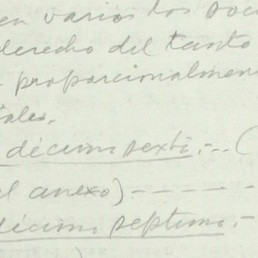 en varios los soci
derecho del tanto
proporcionalmen
iales.
décimo sexti.-..(
el anexo) - - - - - -
décimo septimo.-